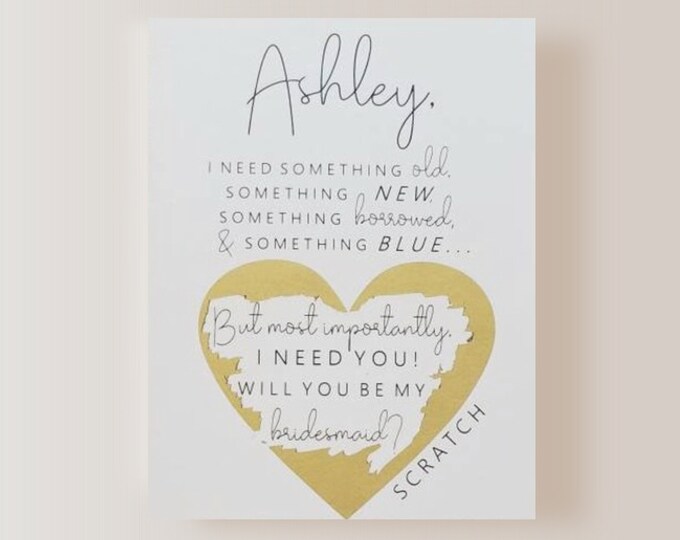 Ashley,
I NEED SOMETHING old,
SOMETHING NEW,
SOMETHING borrowed,
& SOMETHING BLUE...
But most importantly,
I NEED YOU!
WILL YOU BE MY
bridesmaid?
SCRATCH